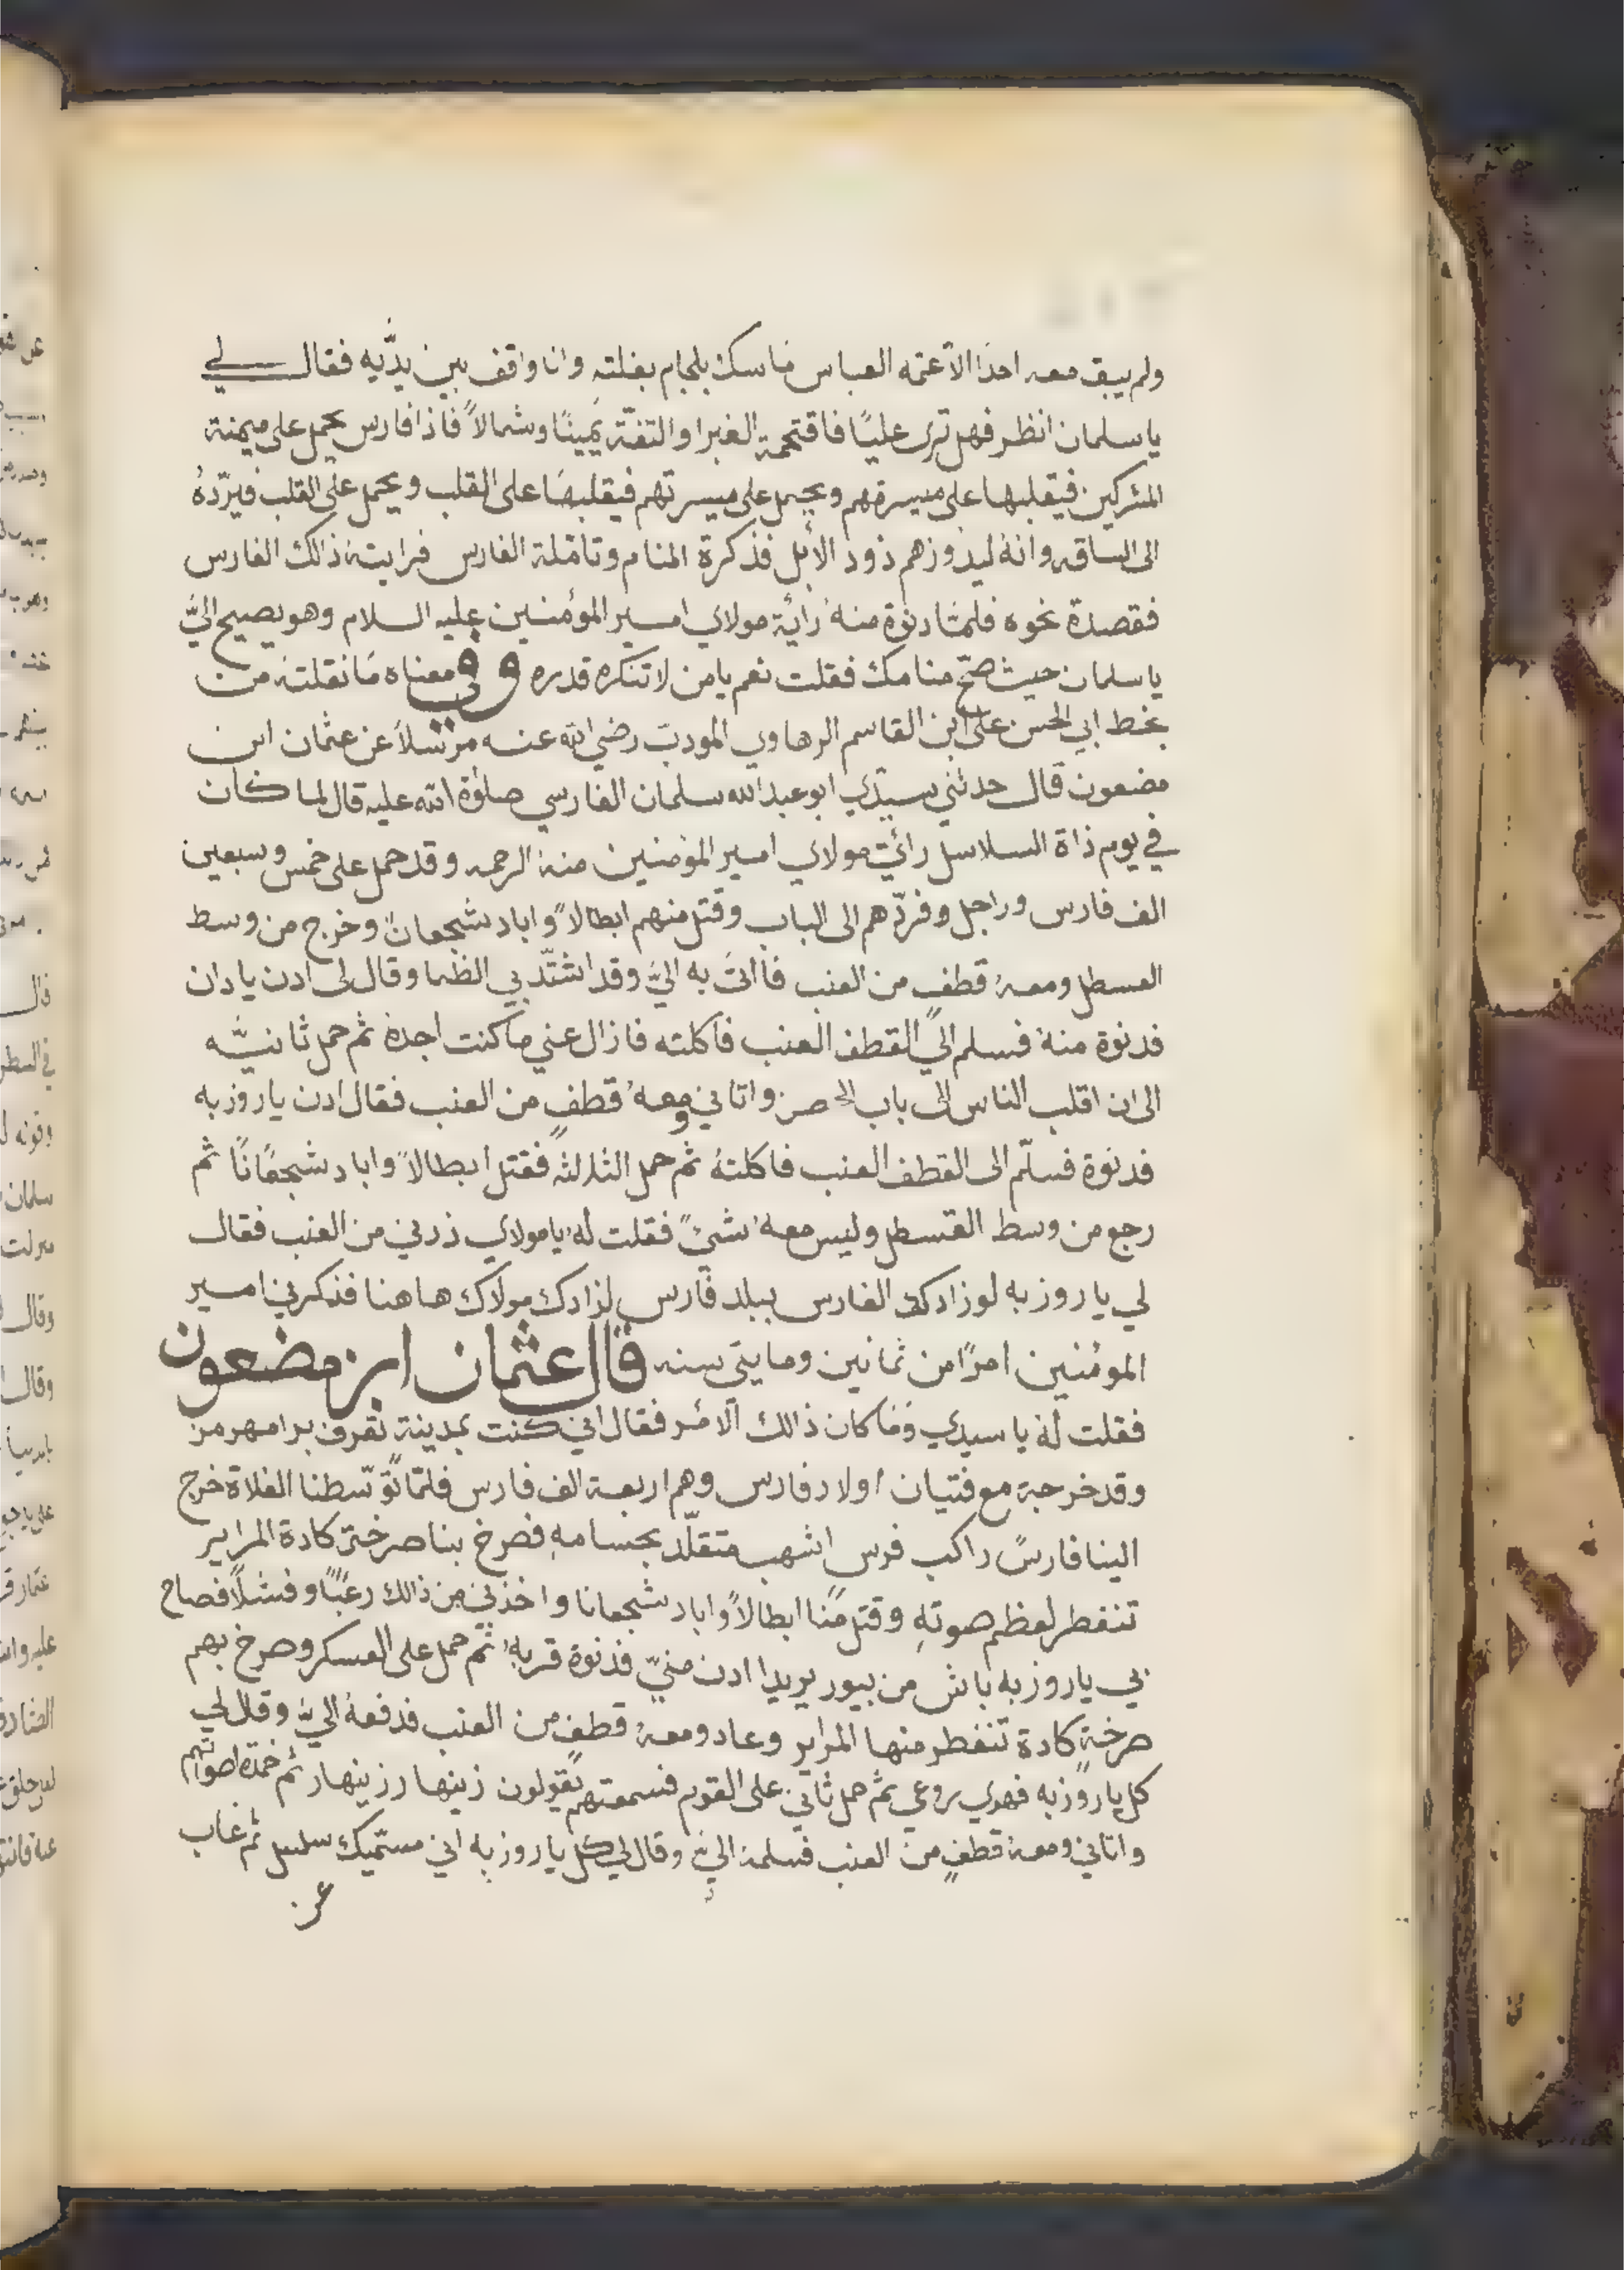 ولم يبق معه احدًا الا عمّه العباس ماسك بلجام بغلته وانا واقف بين يدّيه فقال لي
يا سلمان انظر فهل ترى عليًا فاقتحمة الغبرا والتفتّة يمينًا وشمالاً فاذا فارس يحمل على ميمنة
المشركين فيقلبها على ميسرتهم ويحمل على ميسرتهم فيقلبها على القلب ويحمل على القلب فيردّهُ
الى الساقه وانهُ ليذودهم ذود الأبل فذكرة المنام وتامّلة الفارس فرايتهُ ذالك الفارس
فقصدة نحوه فلمّا دنوة منهُ رأية مولاي امير المؤمنين عليه السلام وهو يصيح اليَّ
يا سلمان حيث صحّ منامك فقلت نعم يا من لا تنكره قدره وفي معناه مَا نقلته من
بخط ابي الحسن على ابن القاسم الرهاوي المودب رضي الله عنه مرسلاً عن عثمان ابن
مضعون قال حدثني سيدي ابو عبد الله سلمان الفارسي صلوٰة الله عليه قال لما كان
في يوم ذاة السلاسل رائة مولاي امير المؤمنين منهُ الرحمه وقد حمل على خمس وسبعين
الف فارس وراجل وفردّهم الى الباب وقتل منهم ابطالاً واباد شجعانً وخرج من وسط
القسطل ومعهُ قطفٍ من العنب فأاتىَ به اليَّ وقد اشتّد بي الظما وقال لى ادن يا دان
فدنوة منهُ فسلم اليَّ القطف العنب فاكلته فازال عني ما كنت اجدهُ ثم حمل ثانيّه
الى ان اقلب الناس الى باب الحصن واتاني ومعهُ قطفٍ من العنب فقال ادن يا روزبه
فدنوة فسلّم الى القطف العنب فاكلتهُ ثم حمل الثالثه فقتل ابطالاً واباد شجعًانًا ثم
رجع من وسط القسطل وليس معهُ شئً فقلت لهُ يا مولاي زدني من العنب فقال
لي يا روزبه لو زادك الفارس ببلد فارس لزادك مولاك هاهنا فذكرني امير
المؤمنين امرًا من ثمانين ومايتي سنه قال عثمان ابن مضعون
فقلت لهُ يا سيدي وَمَا كان ذالك الأمر فقال اني كنت بمدينة تعرف برامهرمز
وقد خرجة مع فتيان اولاد فارس وهم اربعة الف فارس فلمّا تَوّسطنا الفلاة خرج
الينا فارسً راكب فرس اشهب متقلّد بحسامهِ فصرخ بنا صرخة كادة المراير
تنفطر لعظم صوتهِ وقتل منًا ابطالاً واباد شجعانا واخذني من ذالك رعبًا وفشلاً فصاح
بي يا روزبه باش من بيور يريدا ادن منيّ فدنوة قربهُ ثم حمل على العسكر وصرخ بهم
صرخةٍ كادة تنفطر منها المراير وعاد ومعهُ قطفٍ من العنب فدفعهُ اليَّ وقال لي
كل يا روزبه فهدي روعي ثم حمل ثاني على القوم فسمعتهم يقولون زينهار زينهار ثم خمدة اصواتهم
واتاني ومعهُ قطفٍ من العنب فسلمهُ اليَّ وقال لي كل يا روزبه اني مستميك سلسل ثم غاب
عن